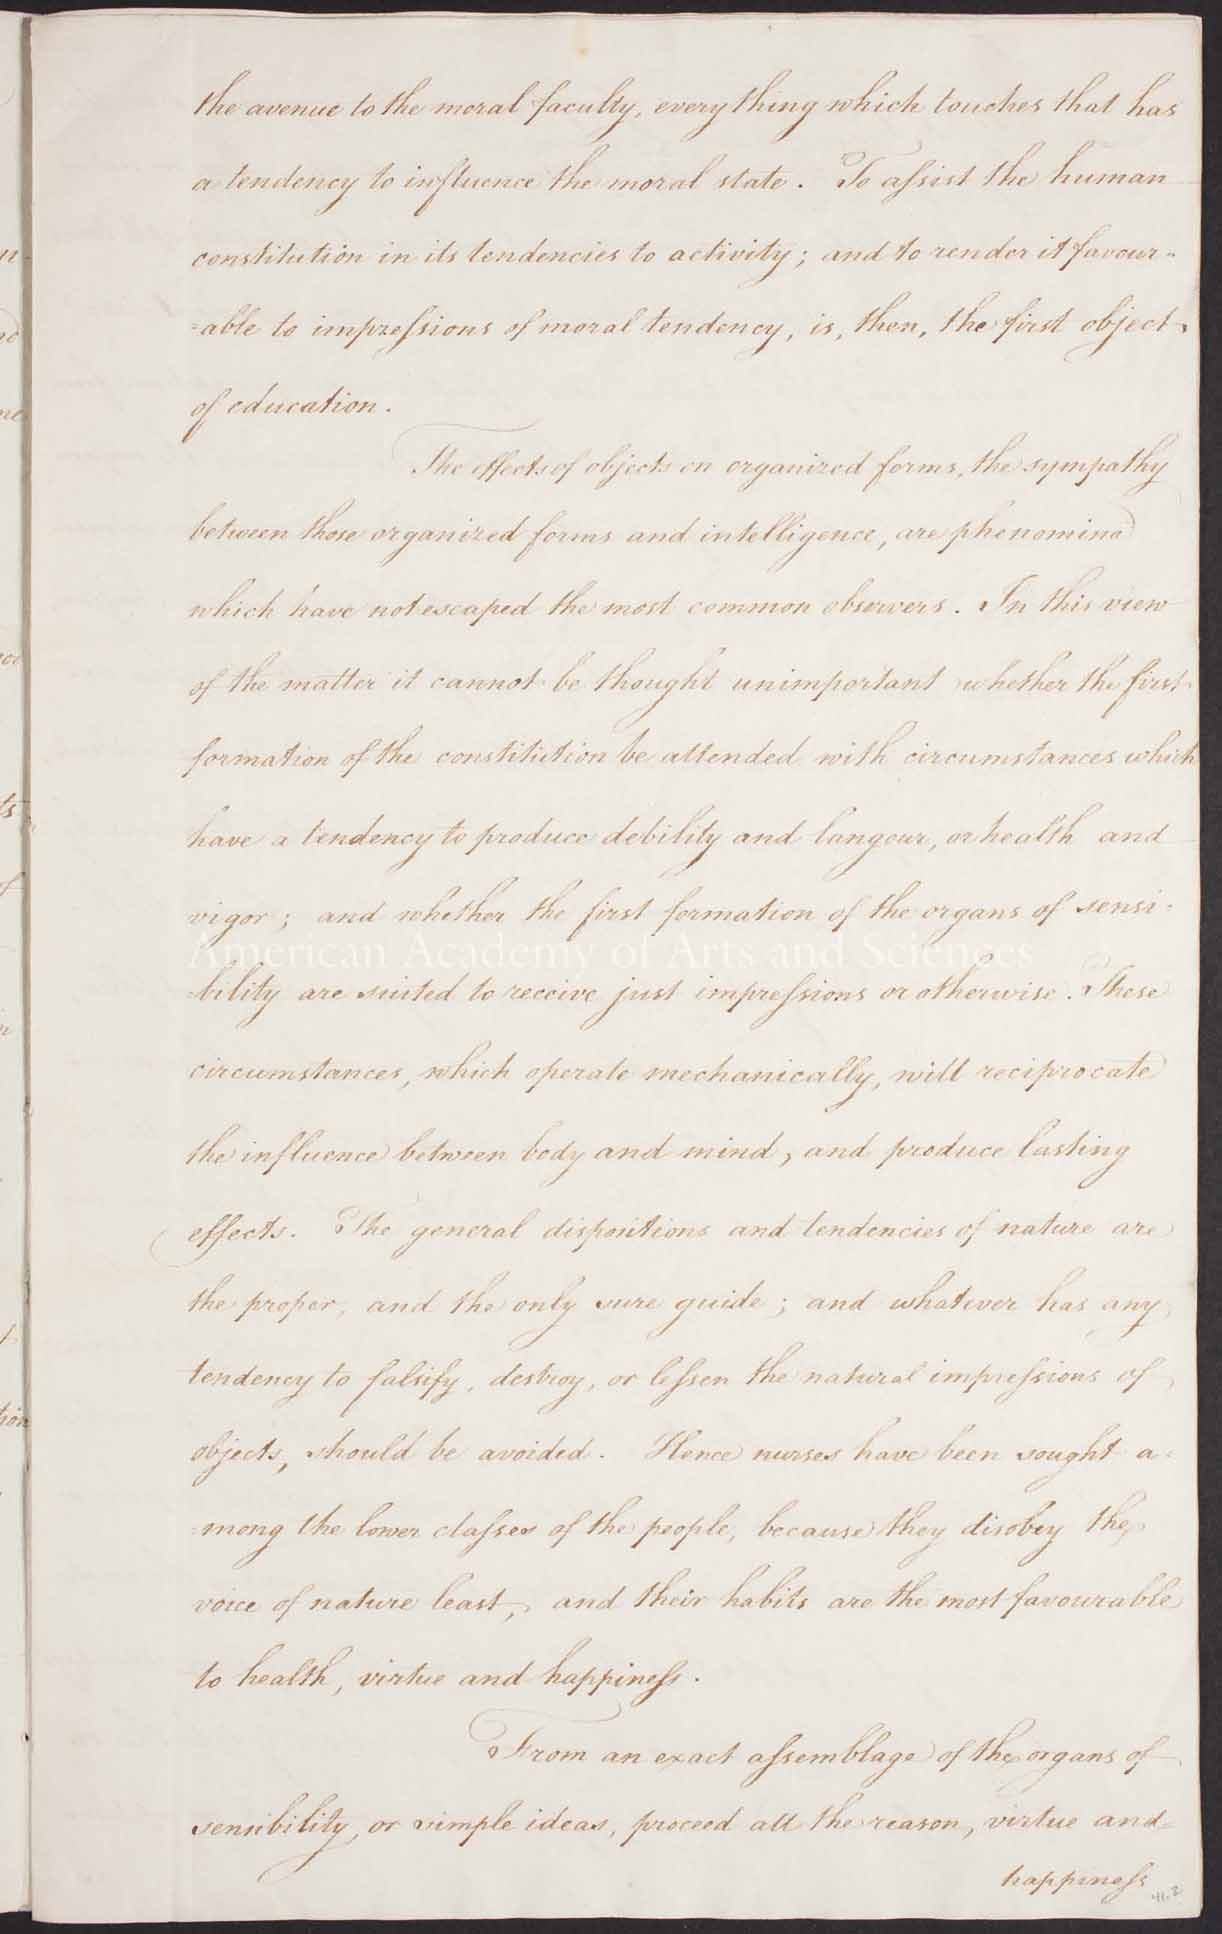 the avenue to the moral faculty, every thing which touches that has
a tendency to influence the moral state. To aſsist the human
constitution in its tendencies to activity; and to render it favour-
=able to impreſsions of moral tendency, is, then, the first object
of education.
The effects of objects on organized forms, the sympathy
between those organized forms and intelligence, are phenomina
which have not escaped the most common observers. In this view
of the matter it cannot be thought unimportant whether the first
formation of the constitution be attended with circumstances which
have a tendency to produce debility and langour, or health and
vigor; and whether the first formation of the organs of sensi-
American Academy of Arts and Sciences
=bility are suited to receive just impreſsions or otherwise. These
circumstances, which operate mechanically, will reciprocate
the influence between body and mind, and produce lasting
effects. The general dispositions and tendencies of nature are
the proper, and the only sure guide; and whatever has any
tendency to falsify, destroy, or leſsen the natural impreſsions of
objects, should be avoided. Hence nurses have been sought a-
=mong the lower claſses of the people, because they disobey the
voice of nature least, and their habits are the most favourable
to health, virtue and happineſs.
From an exact aſsemblage of the organs of
sensibility, or simple ideas, proceed all the reason, virtue and
happineſs